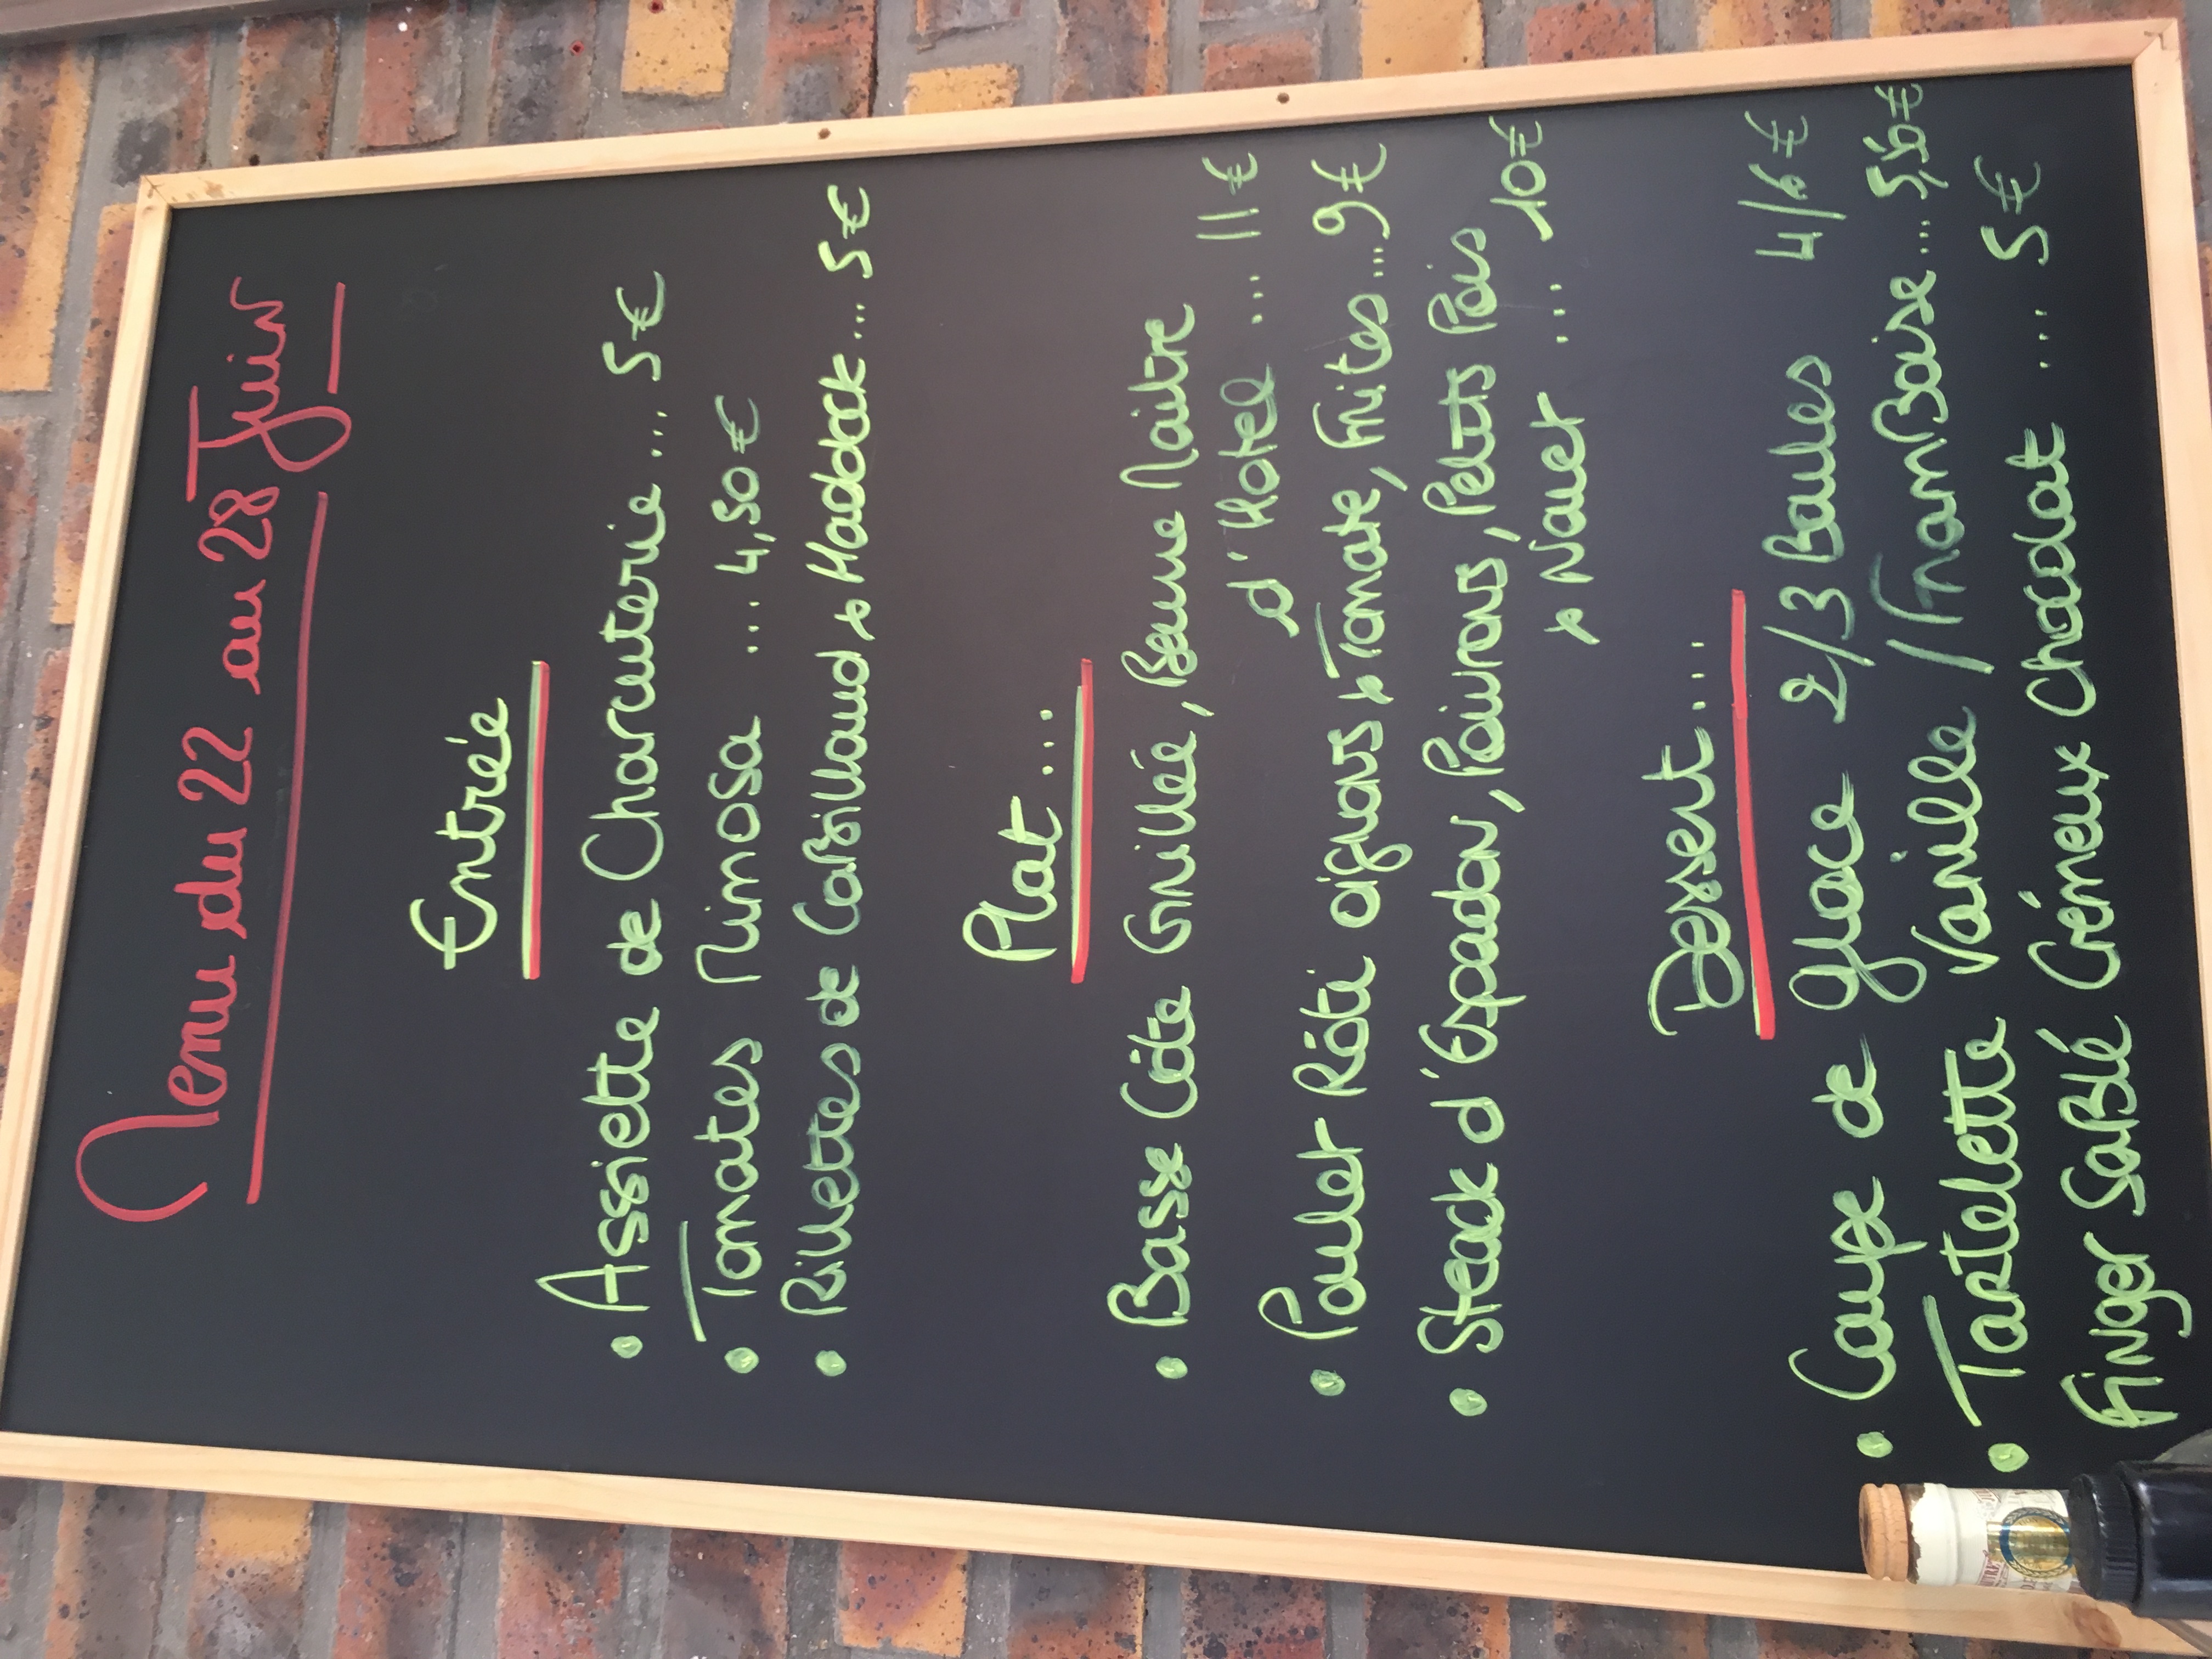 Menu du 22 au 28 Juin
Entrée
• Assiette de Charcuterie... 5€
• Tomates Mimosa .... 4,50€
• Rillettes de Cabillaud & Haddock... 5€
Plat...
• Basse Côte Grillée, Beurre Maitre
d'Hotel ... 11€
• Poulet Rôti oignons & Tomate, Frites ... 9€
• Steack d'Espadon, Poivrons, Petits Pois
& Navet ... 10€
Dessert....
• Coupe de glace 2/3 Boules 4/6€
• Tartelette Vanille / Framboise.... 5,50€
Finger Sablé Crémeux Chocolat .... 5€